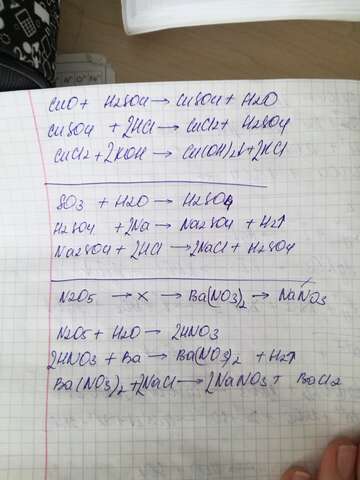 CuO + H2SO4 → CuSO4 + H2O
CuSO4 + 2HCl → CuCl2 + H2SO4
CuCl2 + 2KOH → Cu(OH)2↓ + 2KCl
SO3 + H2O → H2SO4
H2SO4 + 2Na → Na2SO4 + H2↑
Na2SO4 + 2HCl → 2NaCl + H2SO4
N2O5 → X → Ba(NO3)2 → NaNO3
N2O5 + H2O → 2HNO3
2HNO3 + Ba → Ba(NO3)2 + H2↑
Ba(NO3)2 + 2NaCl → 2NaNO3 + BaCl2